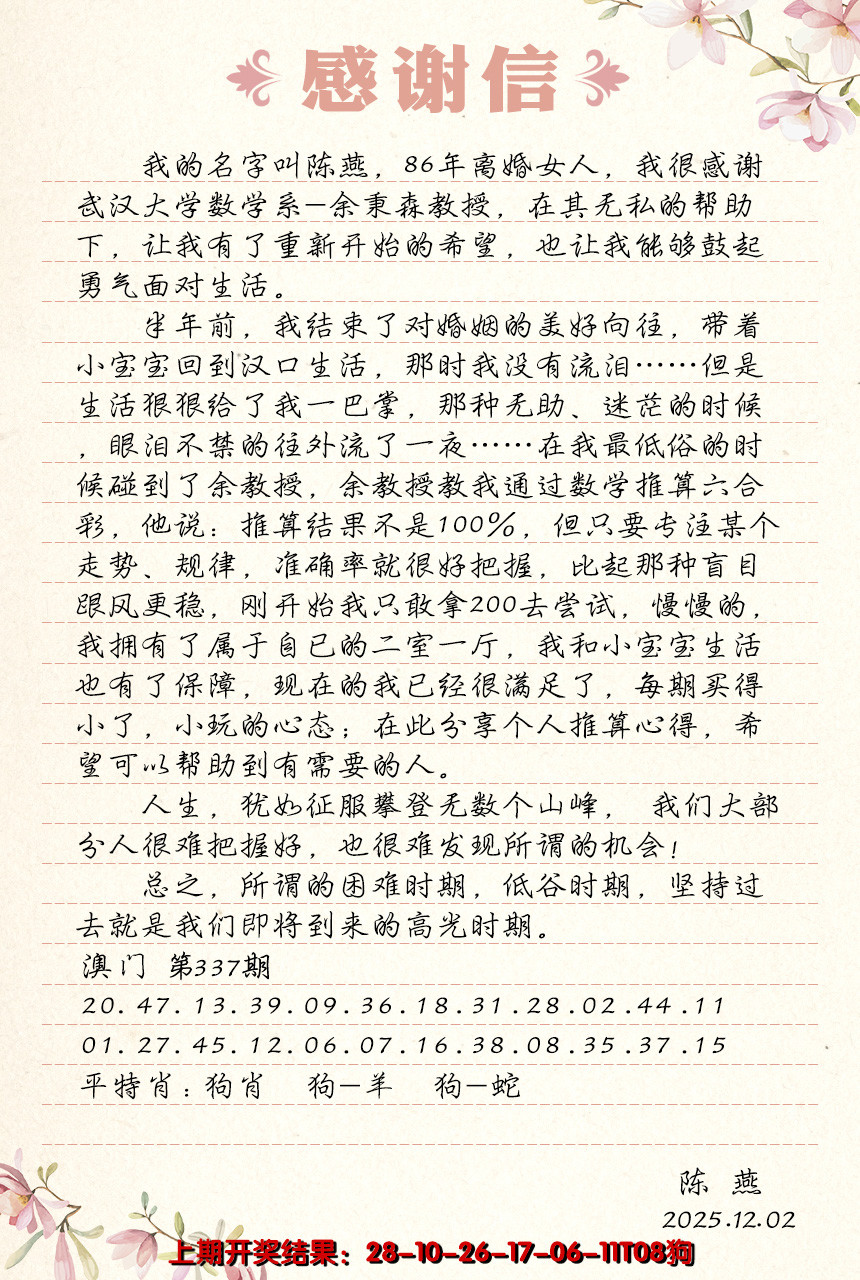 感谢信
我的名字叫陈燕，86年离婚女人，我很感谢
武汉大学数学系—余秉森教授，在其无私的帮助
下，让我有了重新开始的希望，也让我能够鼓起
勇气面对生活。
半年前，我结束了对婚姻的美好向往，带着
小宝宝回到汉口生活，那时我没有流泪……但是
生活狠狠给了我一巴掌，那种无助、迷茫的时候
，眼泪不禁的往外流了一夜……在我最低俗的时
候碰到了余教授，余教授教我通过数学推算六合
彩，他说：推算结果不是100%，但只要专注某个
走势、规律，准确率就很好把握，比起那种盲目
跟风更稳，刚开始我只敢拿200去尝试，慢慢的，
我拥有了属于自己的二室一厅，我和小宝宝生活
也有了保障，现在的我已经很满足了，每期买得
小了，小玩的心态；在此分享个人推算心得，希
望可以帮助到有需要的人。
人生，犹如征服攀登无数个山峰， 我们大部
分人很难把握好，也很难发现所谓的机会！
总之，所谓的困难时期，低谷时期，坚持过
去就是我们即将到来的高光时期。
澳门 第337期
20.47.13.39.09.36.18.31.28.02.44.11
01.27.45.12.06.07.16.38.08.35.37.15
平特肖：狗肖 狗—羊 狗—蛇
陈 燕
2025.12.02
上期开奖结果：28-10-26-17-06-11T08狗